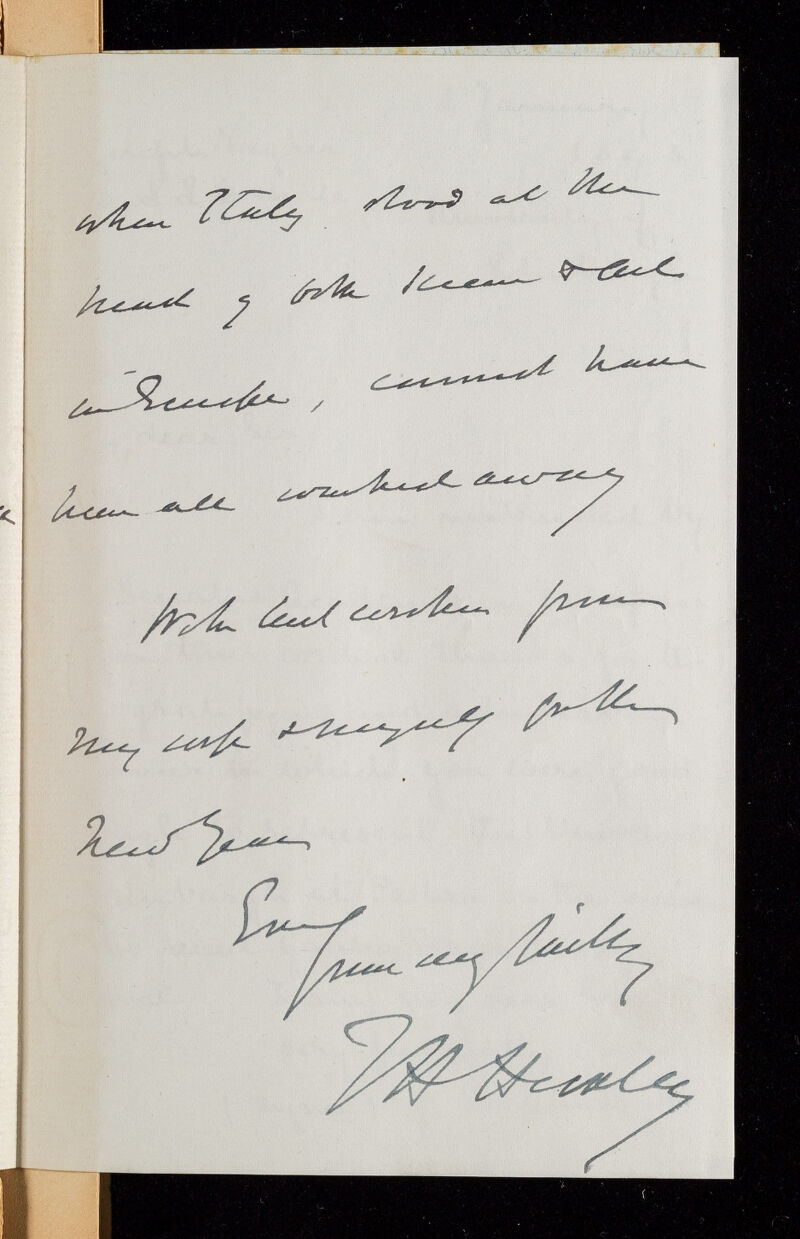 when Italy stood at the
head of both science & art
in Europe, cannot have
been all washed away
With best wishes from
my wife & myself for the
New Year
Ever
yours very faithfully
T H Huxley